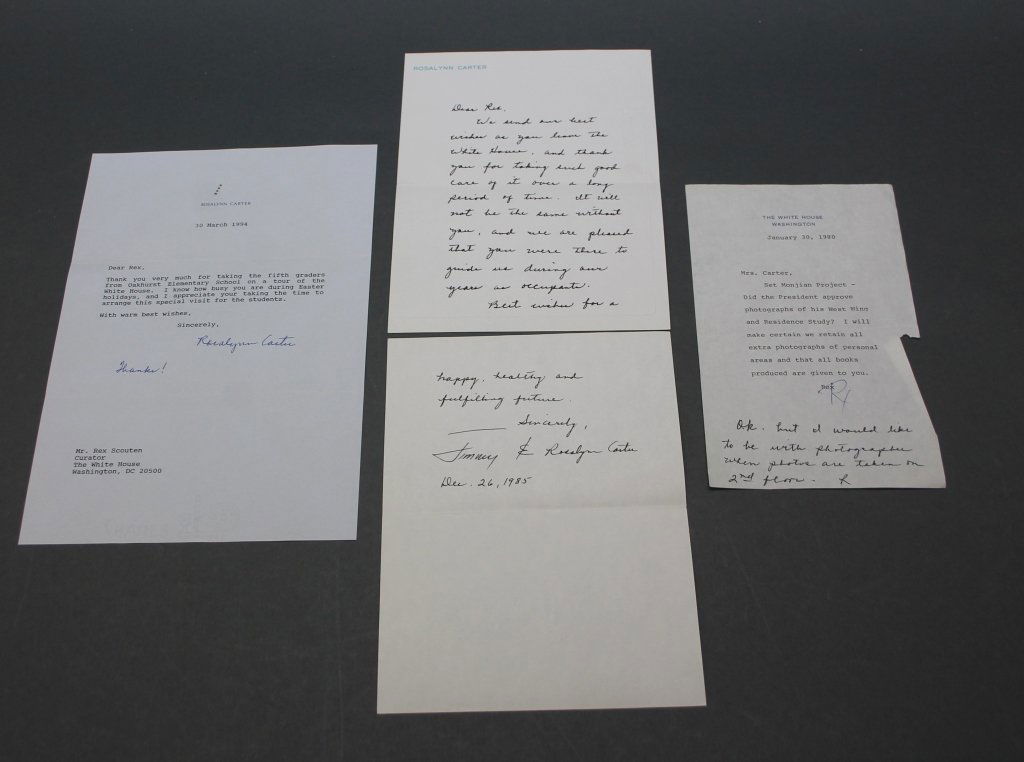 ROSALYNN CARTER
30 March 1994
Dear Rex,
Thank you very much for taking the fifth graders
from Oakhurst Elementary School on a tour of the
White House. I know how busy you are during Easter
holidays, and I appreciate your taking the time to
arrange this special visit for the students.
With warm best wishes,
Sincerely,
Rosalynn Carter
Thanks!
Mr. Rex Scouten
Curator
The White House
Washington, DC 20500
ROSALYNN CARTER
Dear Rex,
We send our best
wishes as you leave the
White House, and thank
you for taking such good
care of it over a long
period of time. It will
not be the same without
you, and we are pleased
that you were there to
guide us during our
years as occupants.
Best wishes for a
happy, healthy and
fulfilling future.
Sincerely,
Jimmy & Rosalynn Carter
Dec. 26, 1985
THE WHITE HOUSE
WASHINGTON
January 30, 1980
Mrs. Carter,
Set Monjian Project -
Did the President approve
photographs of his West Wing
and Residence Study? I will
make certain we retain all
extra photographs of personal
areas and that all books
produced are given to you.
Rex
Ok. but I would like
to be with photographer
when photos are taken on
2nd floor. R